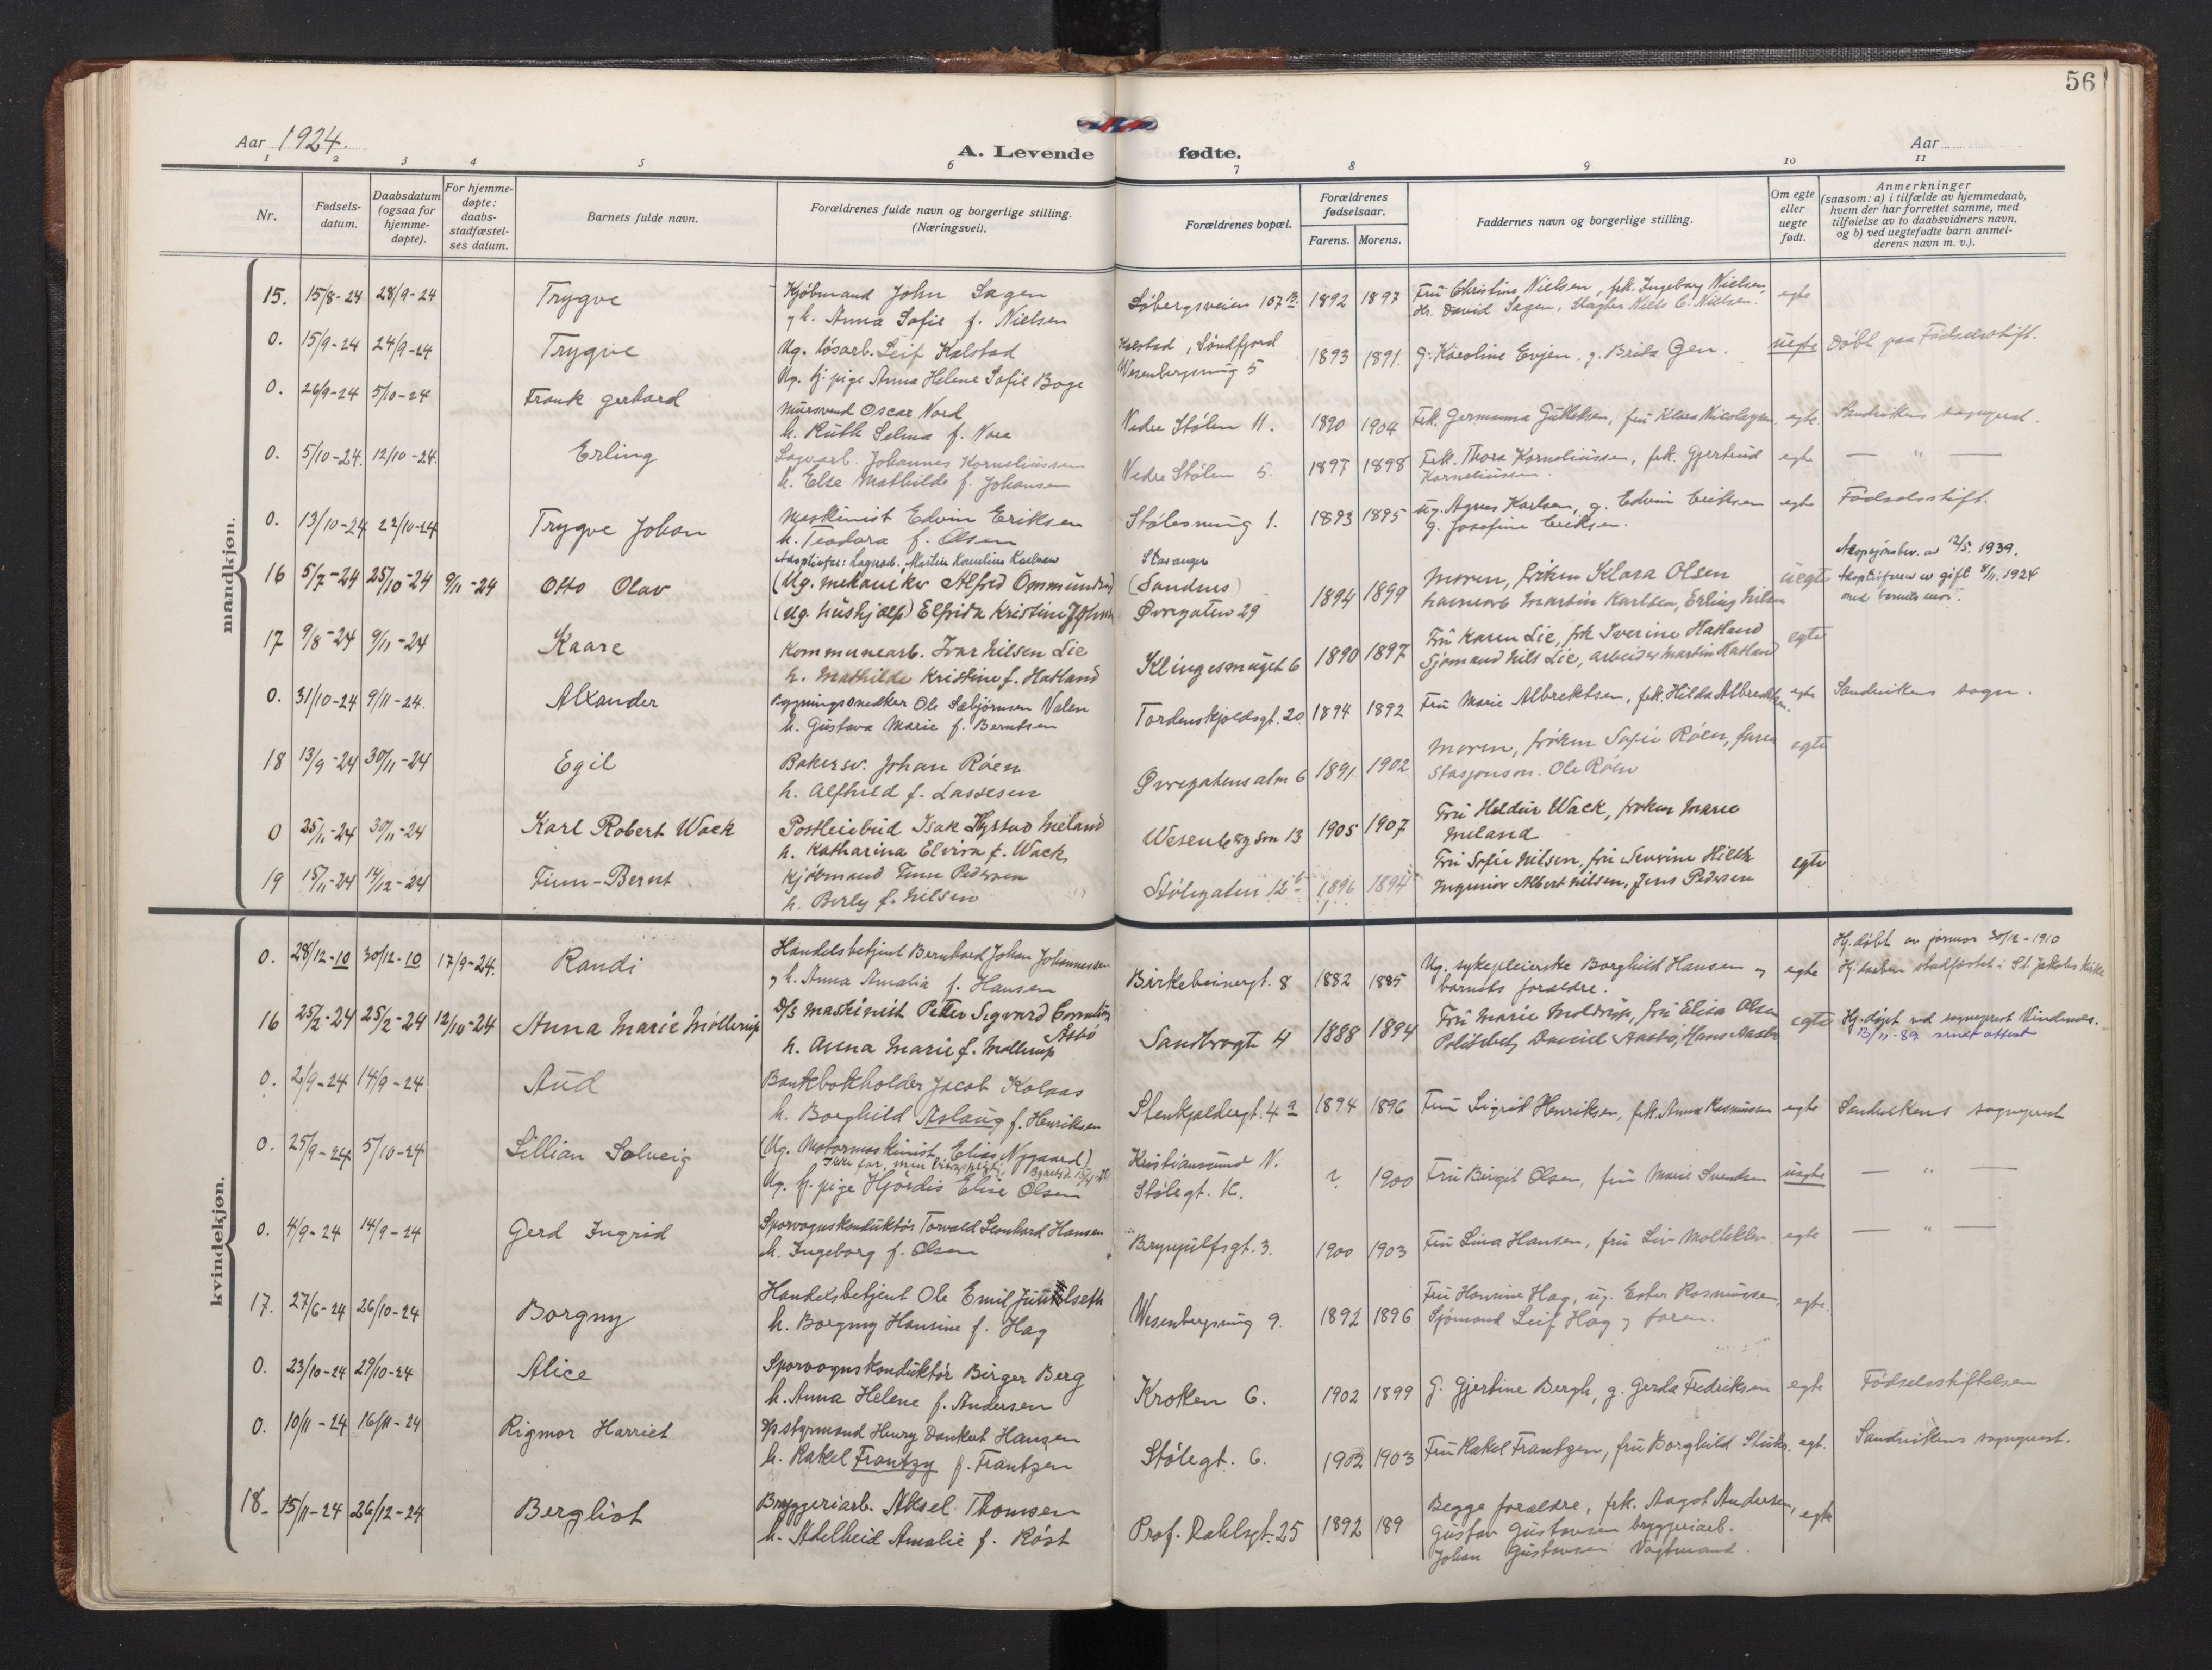 56
Aar 1924.
A. Levende fødte.
Aar
1 2 3 4 5 6 7 8 9 10 11
Nr.
Fødsels-
datum.
Daabsdatum
(ogsaa for
hjemme-
døpte).
For hjemme-
døpte:
daabs-
stadfæstel-
ses datum.
Barnets fulde navn.
Forældrenes fulde navn og borgerlige stilling.
(Næringsvei).
Forældrenes bopæl.
Forældrenes
fødselsaar.
Farens. Morens.
Faddernes navn og borgerlige stilling.
Om egte
eller
uegte
født.
Anmerkninger
(saasom: a) i tilfælde av hjemmedaab,
hvem der har forrettet samme, med
tilføielse av to daabsvidners navn,
og b) ved uegtefødte barn anmel-
derens navn m. v.).
mandkjøn.
15. 15/8-24 28/9-24 Trygve
Kjøbmand John Sagen
h. Anna Sofie f. Nielsen
Søbergsveien 107 1892 1897
Fru Christine Nielsen, frk. Ingeborg Nielsen,
Hr. David Sagen, Niels C. Nielsen. egte
0. 15/9-24 24/9-24 Trygve
Ug. løsarb. Leif Kalstad
Ug. tj. pige Anna Helene Sofie Boge
Kalstad, Søndfjord
Wesenbergsmug 5 1893 1891.
G. Karoline Evjen, g. Brita Gen. uegte Døbt paa Fødselsstift.
0. 26/9-24 5/10-24 Frank Gerhard
Mursvend Oscar Nord
h. Ruth Selma f. Nore
Nedre Stølen 11. 1890 1904
Frk. Germanna Gulleksen, fru Klara Nicolaysen. egte. Sandvikens sogneprest.
0. 5/10-24. 12/10-24. Erling
Lagerarb. Johannes Korneliussen
h. Else Mathilde f. Johansen
Nedre Stølen 5. 1897 1898
Frk. Thora Korneliussen, frk. Gjertrud
Korneliussen. egte — " —
0. 13/10-24 22/10-24 Trygve Johan
Maskinist Edvin Eriksen
h. Teodora f. Olsen
Stølesmug 1. 1893 1895
Ug. Agnes Karlsen, g. Edvin Eriksen
g. Josefine Eriksen. egte Fødselsstift.
16 5/7-24 25/10-24 9/11-24 Otto Olav
Adoptivfar: Lagerarb. Martin Kornelius Karlsen
(Ug. mekaniker Alfred Ommundsen)
(Ug. hushjælp) Elfrida Kristine Johnsen
Stavanger
(Sandnes)
Øvregaten 29 1894 1899
Moren, frøken Klara Olsen
havnearb Martin Karlsen, Erling Nilsen uegte
Adopsjonsbev. av 12/5. 1939.
Adoptivfaren er gift 8/11. 1924
med barnets mor.
17 9/8-24 9/11-24 Kaare
Kommunearb. Ivar Nilsen Lie
h. Mathilde Kristine f. Hatland
Klingesmuget 6 1890 1897
Fru Karen Lie, frk Iverine Hatland
Sjømand Nils Lie, arbeider Martin Hatland egte
0. 31/10-24 9/11-24. Alxander
Bygningssnedker Ole Sebjørnsen Valen
h. Gustava Marie f. Berntsen
Tordenskjoldsgt. 20. 1894 1892
Fru Marie Albrektsen, frk. Hilda Albrektsen. egte Sandvikens sogn.
18 13/9-24 30/11-24 Egil
Bakersv. Johan Røen
h. Alfhild f. Lassesen
Øvregatens alm 6 1891 1902
Moren, frøken Sofie Røen, faren
Stasjonsm. Ole Røen egte
0 25/11-24 30/11-24 Karl Robert Wack
Posteleibud Isak Hystad Meland
h. Katharina Elvira f. Wack
Wesenbergsm 13 1905 1907
Fru Haldur Wack, frøken Marie
Meland
19 15/11-24 14/12-24 Finn-Bernt
Kjøbmand Finn Pedersen
h. Berly f. Nilsen
Stølegaten 12 b 1896 1894
Fru Sofie Nilsen, fru Severine Hilth
Ingeniør Albert Nilsen, Jens Pedersen egte
kvindekjøn.
0. 28/12-10 30/12-10 17/9-24. Randi
Handelsbetjent Bernhard Johan Johannessen
h. Anna Amalia f. Hansen
Birkebeinergt. 8 1882 1885
Ug. sykepleierske Borghild Hansen og
barnets forældre. egte
Hj. døbt av jormor 30/12-1910
Hj. daaben stadfæstet i St. Jakobs Kirke
16 25/2-24 25/2-24 12/10-24 Anna Marie Møllerup
D/S Maskinist Petter Sigvard Cornelius
Aasbø
h. Anna Marie f. Møllerup
Sandbrogt 4 1888 1894
Fru Marie Moldrup, fru Elisa Olsen
Daniel Aasbø, Hans Aasbø egte
Hj. døpt ved sogneprest Vindenes.
13/11-89 sendt attest
0. 2/9-24 14/9-24 Aud
Bankbokholder Jacob Kolaas
h. Borghild Aslaug f. Henriksen
Stenkjældergt. 4a 1894 1896
Fru Sigrid Henriksen, frk. Anna Rasmussen egte Sandvikens sogneprest
0. 25/9-24 5/10-24 Lillian Solveig
(Ug. Motormaskinist Elias Nygaard)
Ikke far, men bidragspligtig.
Ug. tj. pige Hjørdis Elise Olsen
Kristiansund N.
Stølegt. 16. ? 1900
Fru Birgit Olsen, fru Marie Svendsen uegte — " —
0. 4/9-24 14/9-24 Gerd Ingrid
Sporvognskonduktør Torvald Leonhard Hansen
h. Ingeborg f. Olsen
Brynjulfsgt. 3. 1900 1903
Fru Lina Hansen, fru Liv Molteklev. egte — " —
17. 27/6-24 26/10-24 Borgny
Handelsbetjent Ole Emil Juulseth
h. Borgny Hansine f. Hag
Wesenbergsmug 9. 1892 1896
Fru Hansine Hag, ug. Ester Rasmussen,
Sjømand Leif Hag og faren. egte.
0. 23/10-24 29/10-24 Alice
Sporvognskonduktør Birger Berg
h. Anna Helene f. Andersen
Kroken 6. 1902 1899
G. Gjertine Bergh, g. Gerda Fredriksen egte Fødselsstiftelsen
0. 10/11-24 16/11-24 Rigmor Harriet
styrmand Henry Dankert Hansen
h. Rakel Frantzy f. Frantzen
Stølegt. 6. 1902 1903
Fru Rakel Frantzen, fru Borghild egt. Sandvikens sogneprest.
18. 15/11-24 26/12-24 Bergliot
Bryggeriarb. Aksel Thomsen
h. Adelheid Amalie f. Røst
Prof. Dahlsgt. 25 1892 189
Begge forældre, frk. Aagot Andersen,
Gustav Gustavsen bryggeriarb.
Johan Gustavsen Vagtmand. egte